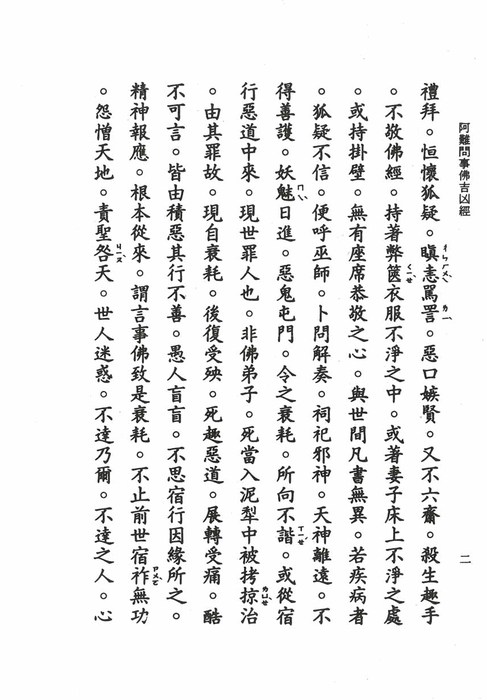 阿難問事佛吉凶經
二
禮拜。恒懷狐疑。瞋ㄔㄣ恚ㄏㄨㄟˋ罵詈ㄌㄧˋ。惡口嫉賢。又不六齋。殺生趣手
。不敬佛經。持著弊篋ㄑㄧㄝˋ衣服不淨之中。或著妻子床上不淨之處
。或持掛壁。無有座席恭敬之心。與世間凡書無異。若疾病者
。狐疑不信。便呼巫師。卜問解奏。祠祀邪神。天神離遠。不
得善護。妖魅ㄇㄟˋ日進。惡鬼屯門。令之衰耗。所向不諧ㄒㄧㄝˊ。或從宿
行惡道中來。現世罪人也。非佛弟子。死當入泥犁中被拷掠ㄌㄩㄝˋ治
。由其罪故。現自衰耗。後復受殃。死趣惡道。展轉受痛。酷
不可言。皆由積惡其行不善。愚人盲盲。不思宿行因緣所之。
精神報應。根本從來。謂言事佛致是衰耗。不止前世宿祚ㄗㄨㄛˋ無功
。怨憎天地。責聖咎ㄐㄧㄡˋ天。世人迷惑。不達乃爾。不達之人。心